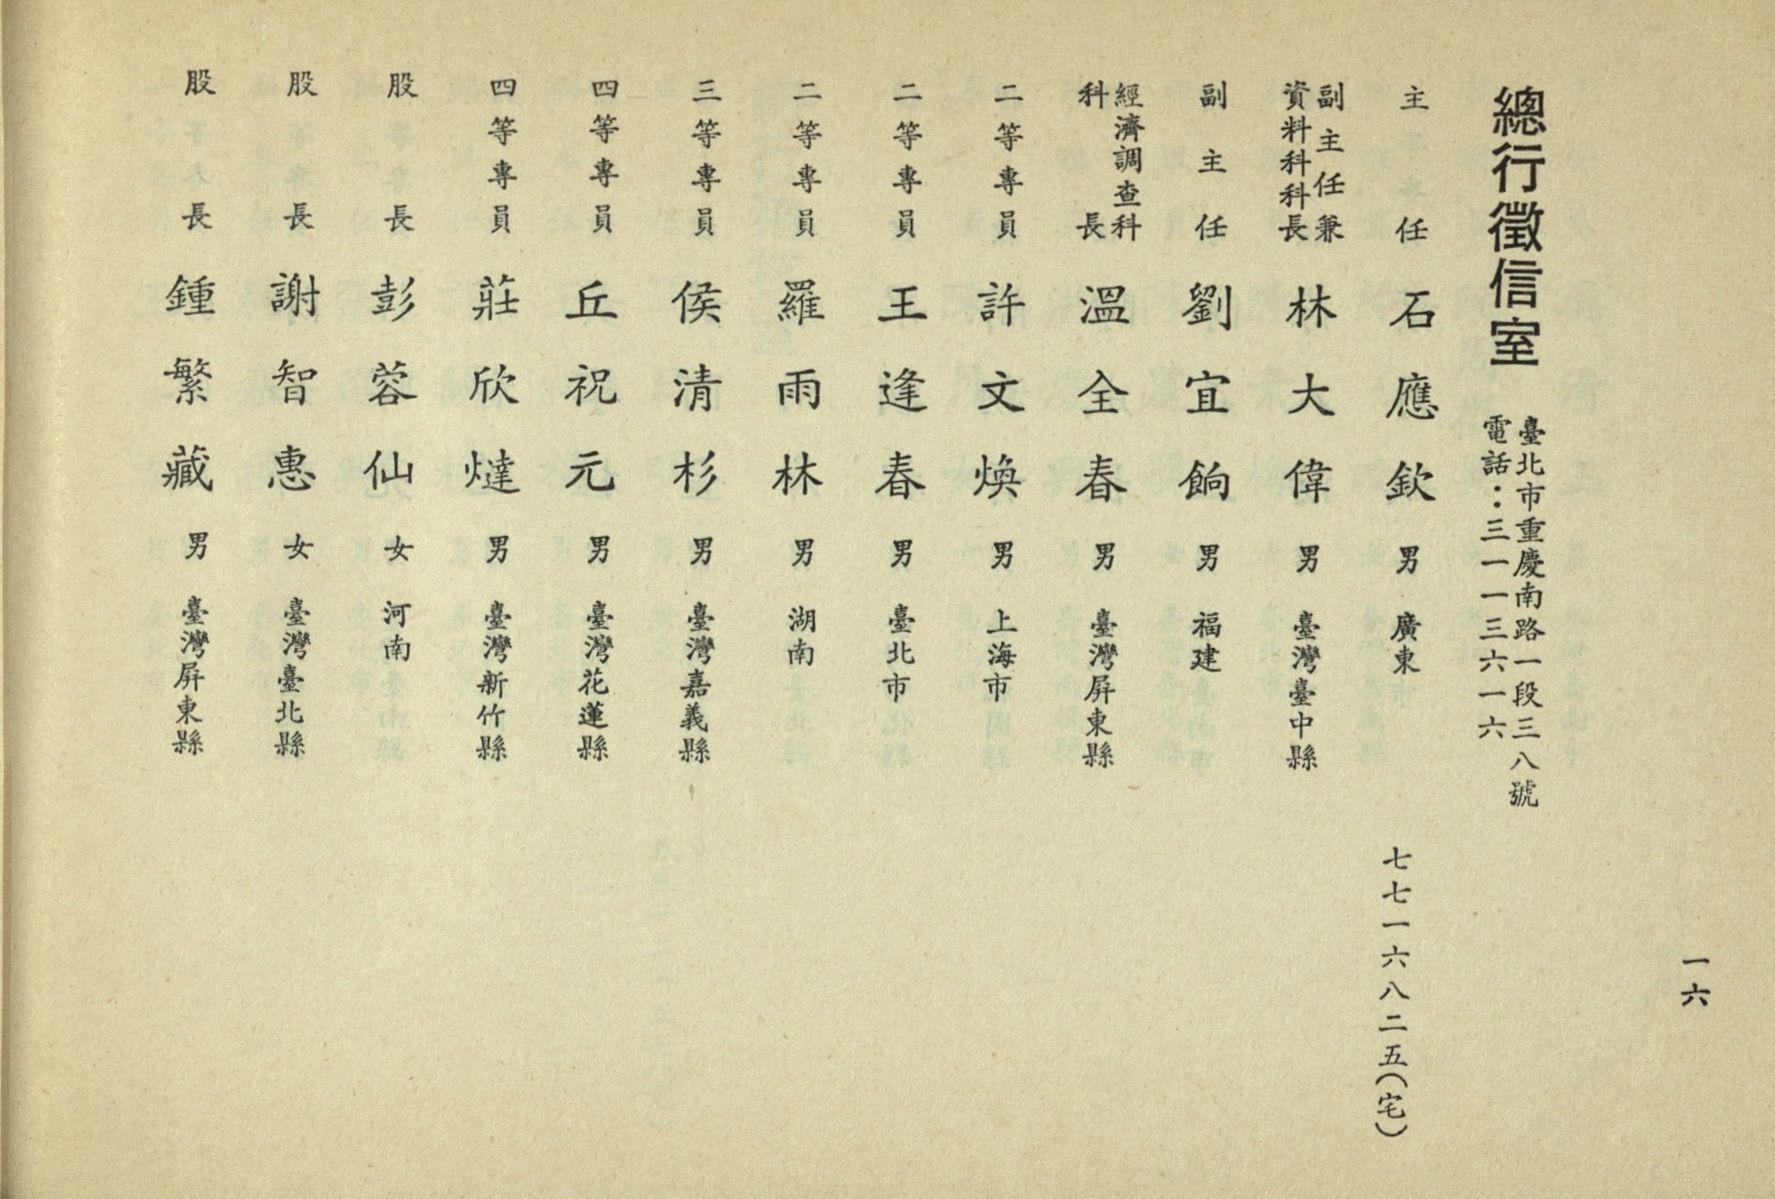 一六
總行徵信室
臺北市重慶南路一段三八號
電話：三一一三六一六
主任 石應欽 男 廣東 七七一六八二五（宅）
副主任兼
資料科科長 林大偉 男 臺灣臺中縣
副主任 劉宜餉 男 福建
經濟調查科
科長 溫全春 男 臺灣屏東縣
二等專員 許文煥 男 上海市
二等專員 王逢春 男 臺北市
二等專員 羅雨林 男 湖南
三等專員 侯清杉 男 臺灣嘉義縣
四等專員 丘祝元 男 臺灣花蓮縣
四等專員 莊欣燵 男 臺灣新竹縣
股長 彭蓉仙 女 河南
股長 謝智惠 女 臺灣臺北縣
股長 鍾繁藏 男 臺灣屏東縣